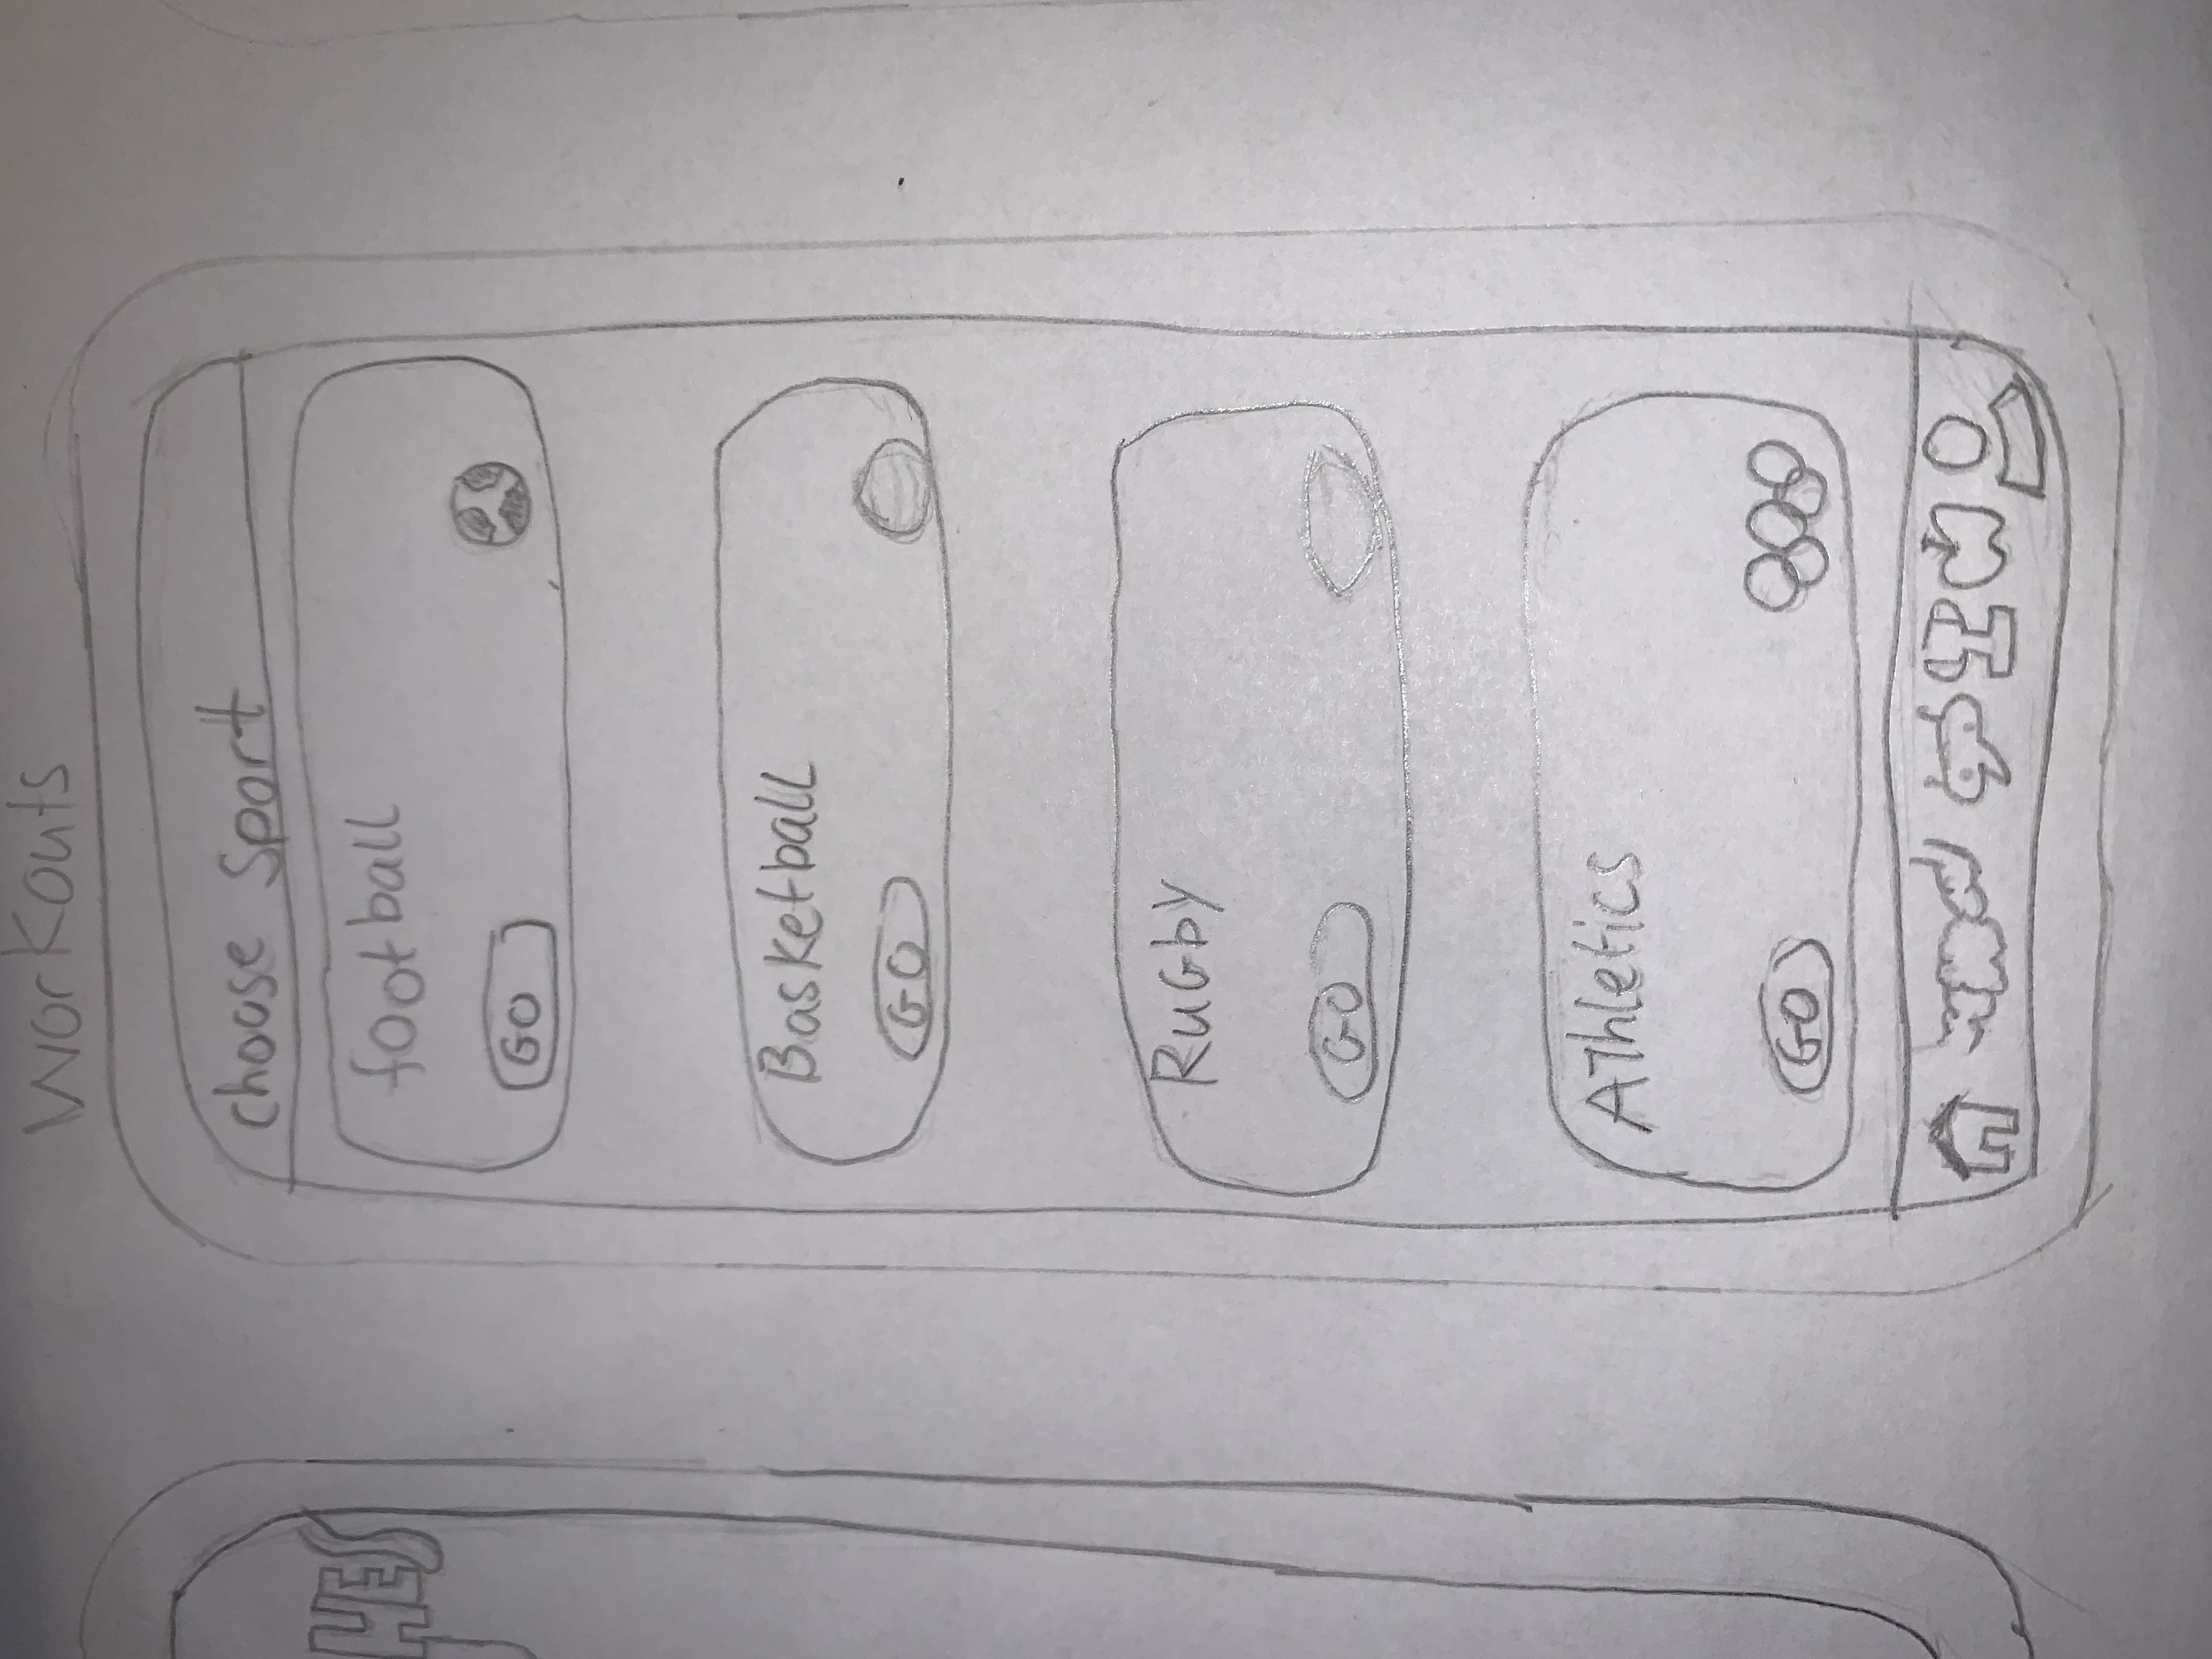 Workouts
HES
choose Sport
football
GO
Basketball
GO
RuGby
GO
AThletics
GO